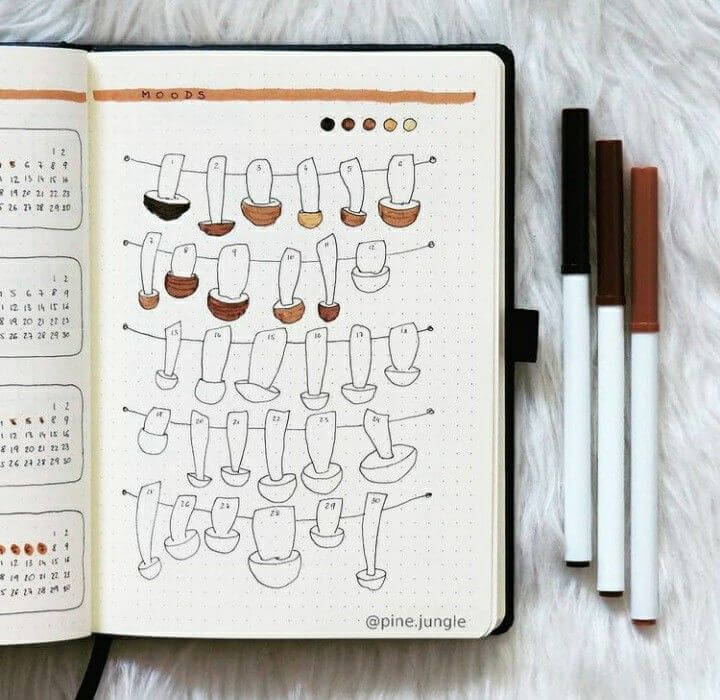 1 2
5 6 7 8 9
12 13 14 15 16
19 20 21 22 23
26 27 28 29 30
1 2
5 6 7 8 9
12 13 14 15 16
19 20 21 22 23
26 27 28 29 30
1 2
5 6 7 8 9
12 13 14 15 16
19 20 21 22 23
26 27 28 29 30
1 2
8 9
12 13 14 15 16
19 20 21 22 23
26 27 28 29 30
MOODS
1 2 3 4 5 6
7 8 9 10 11 12
13 14 15 16 17 18
19 20 21 22 23 24
25 26 27 28 29 30
@pine.jungle